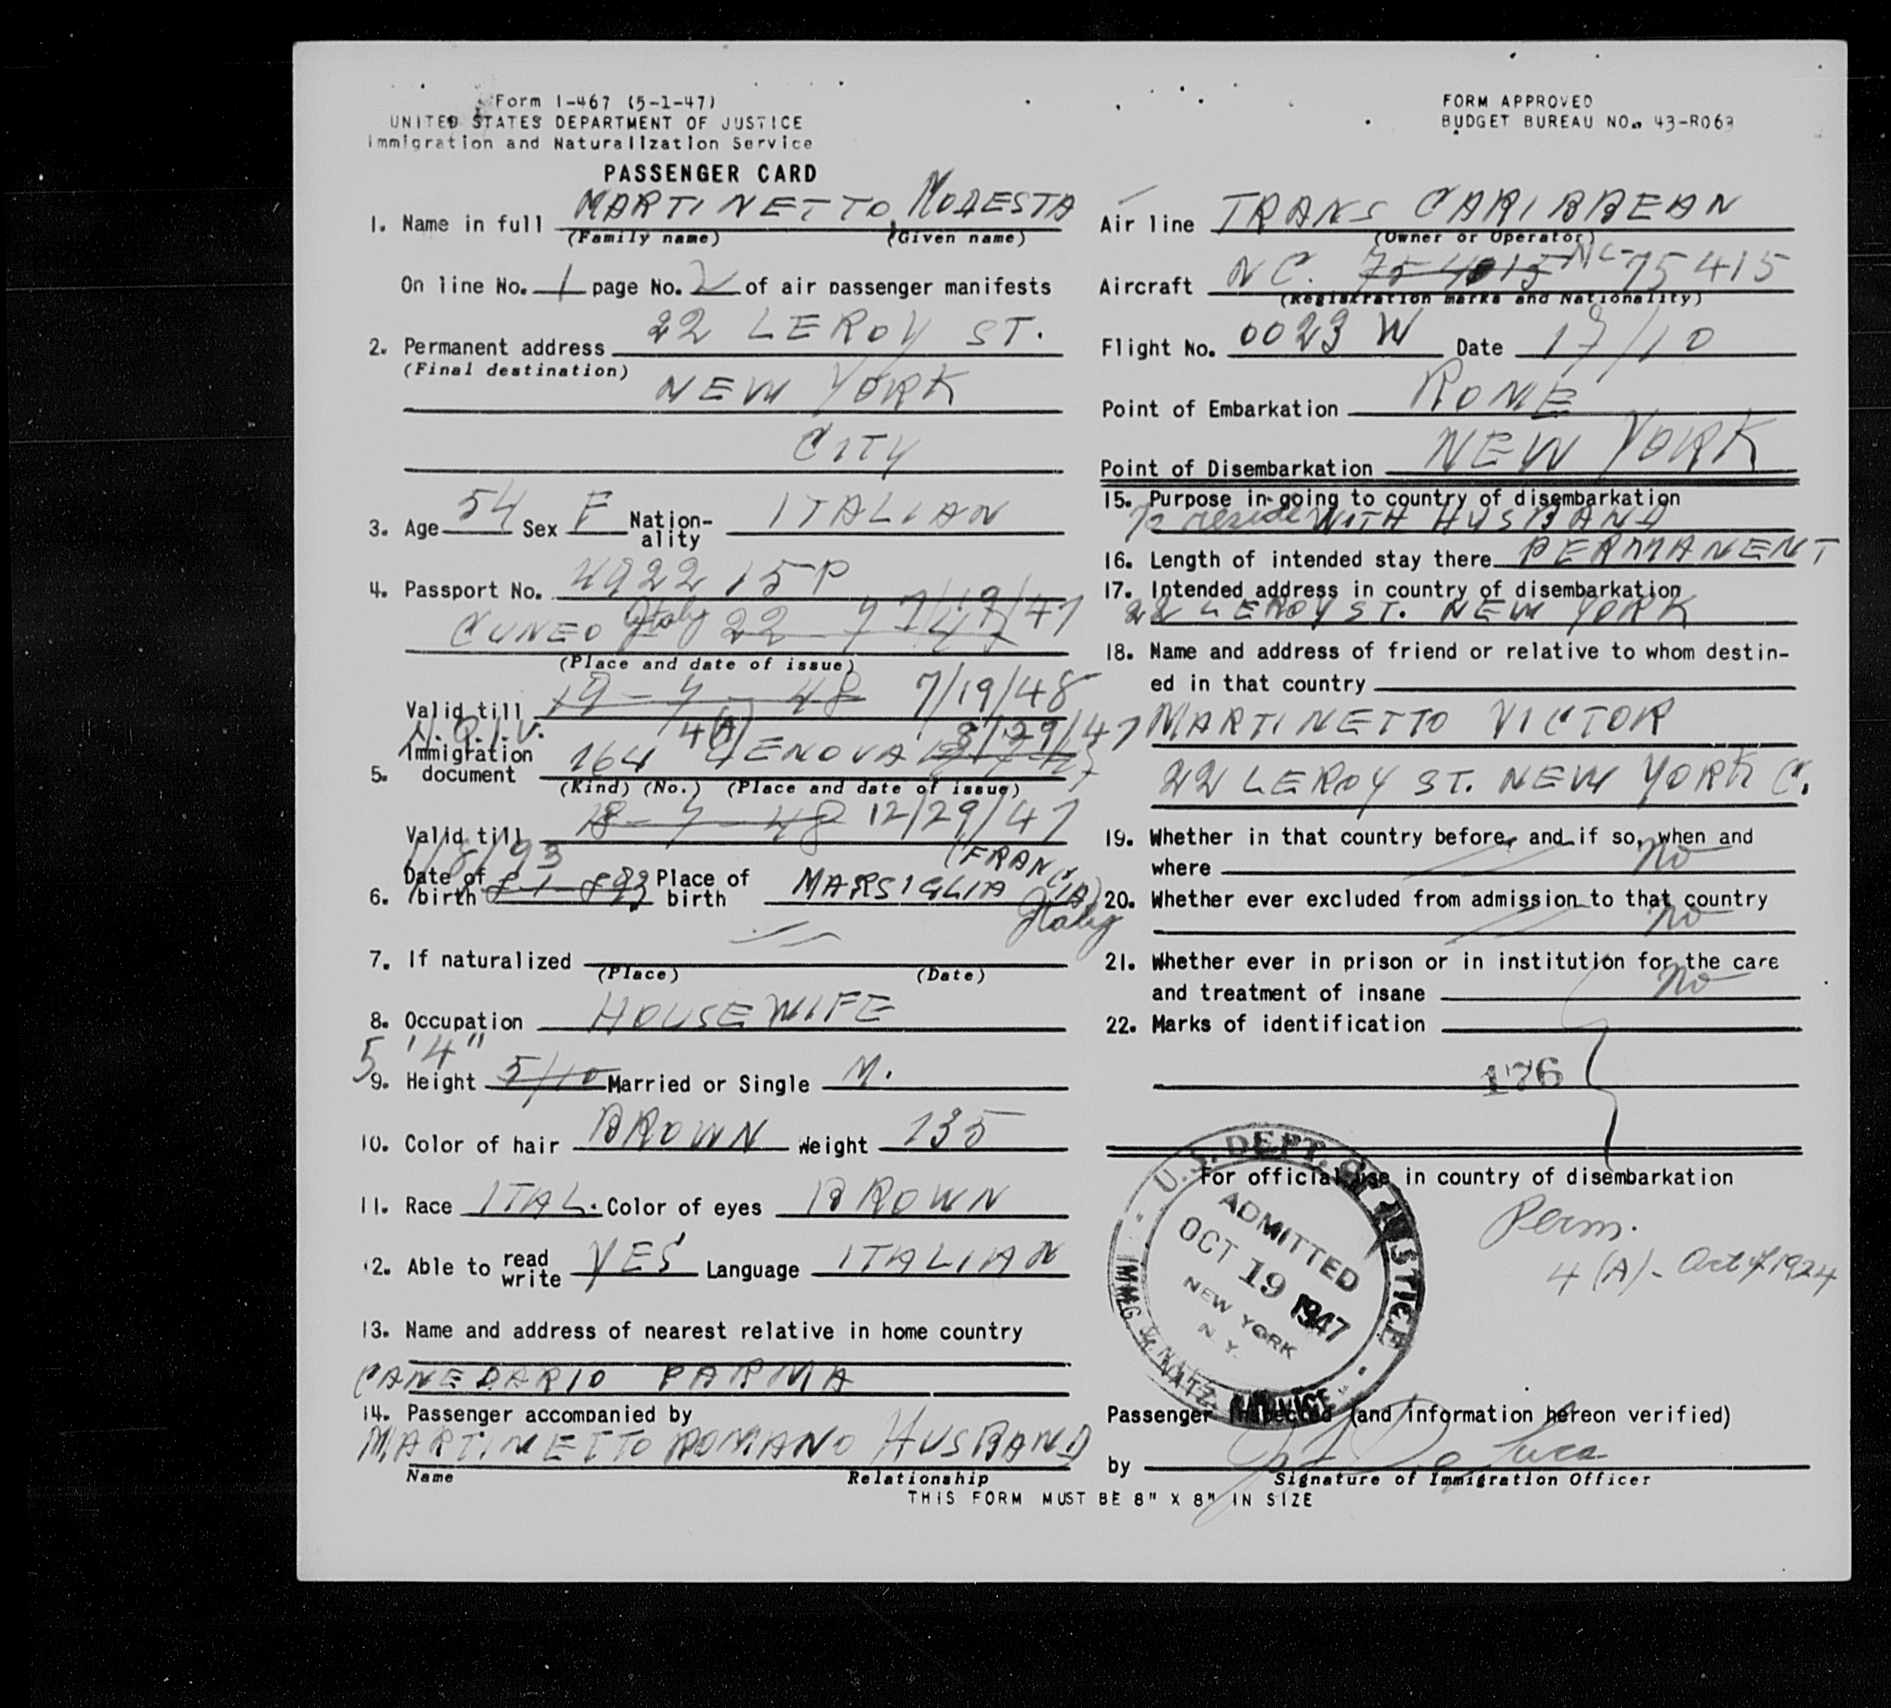 Form I-467 (5-1-47)
UNITED STATES DEPARTMENT OF JUSTICE
Immigration and Naturalization Service
PASSENGER CARD
1. Name in full MARTINETTO, MODESTA
(Family name) (Given name)
On line No. 1 page No. 2 of air passenger manifests
2. Permanent address 22 LEROY ST.
(Final destination)
NEW YORK
CITY
3. Age 54 Sex F Nation-ality ITALIAN
4. Passport No. 492215P
CUNEO Italy 22 7 47 7/19/47
(Place and date of issue)
Valid till 19-7-48 7/19/48
N.Q.I.V. 4(A) 8/29/47
5. Immigration document 164 GENOVA
(Kind) (No.) (Place and date of issue)
Valid till 18-7-48 12/29/47
1/8/93
6. Date of birth 8-1-893 Place of birth MARSIGLIA (FRANCIA)
Italy
7. If naturalized
(Place) (Date)
8. Occupation HOUSEWIFE
5'4"
9. Height 5/10 Married or Single M.
10. Color of hair BROWN Weight 135
11. Race ITAL. Color of eyes BROWN
12. Able to read write YES Language ITALIAN
13. Name and address of nearest relative in home country
CANEDARIO PARMA
14. Passenger accompanied by
MARTINETTO ROMANO HUSBAND
Name Relationship
THIS FORM MUST BE 8" X 8" IN SIZE
FORM APPROVED
BUDGET BUREAU NO. 43-R063
Air line TRANS CARIBBEAN
(Owner or Operator)
Aircraft NC. 754015 NC-75415
(Registration marks and Nationality)
Flight No. 0023 W Date 17/10
Point of Embarkation ROME
Point of Disembarkation NEW YORK
15. Purpose in going to country of disembarkation
To reside WITH HUSBAND
16. Length of intended stay there PERMANENT
17. Intended address in country of disembarkation
22 LEROY ST. NEW YORK
18. Name and address of friend or relative to whom destin-
ed in that country
MARTINETTO VICTOR
22 LEROY ST. NEW YORK C.
19. Whether in that country before, and if so, when and
where No
20. Whether ever excluded from admission to that country
No
21. Whether ever in prison or in institution for the care
and treatment of insane No
22. Marks of identification
176
For official use in country of disembarkation
U.S. DEPT. OF JUSTICE
ADMITTED
OCT 19 1947
NEW YORK
N.Y.
IMMG. & NATZ. SERVICE
Perm.
4(A)- Act of 1924
Passenger inspected (and information hereon verified)
by De Luca
Signature of Immigration Officer